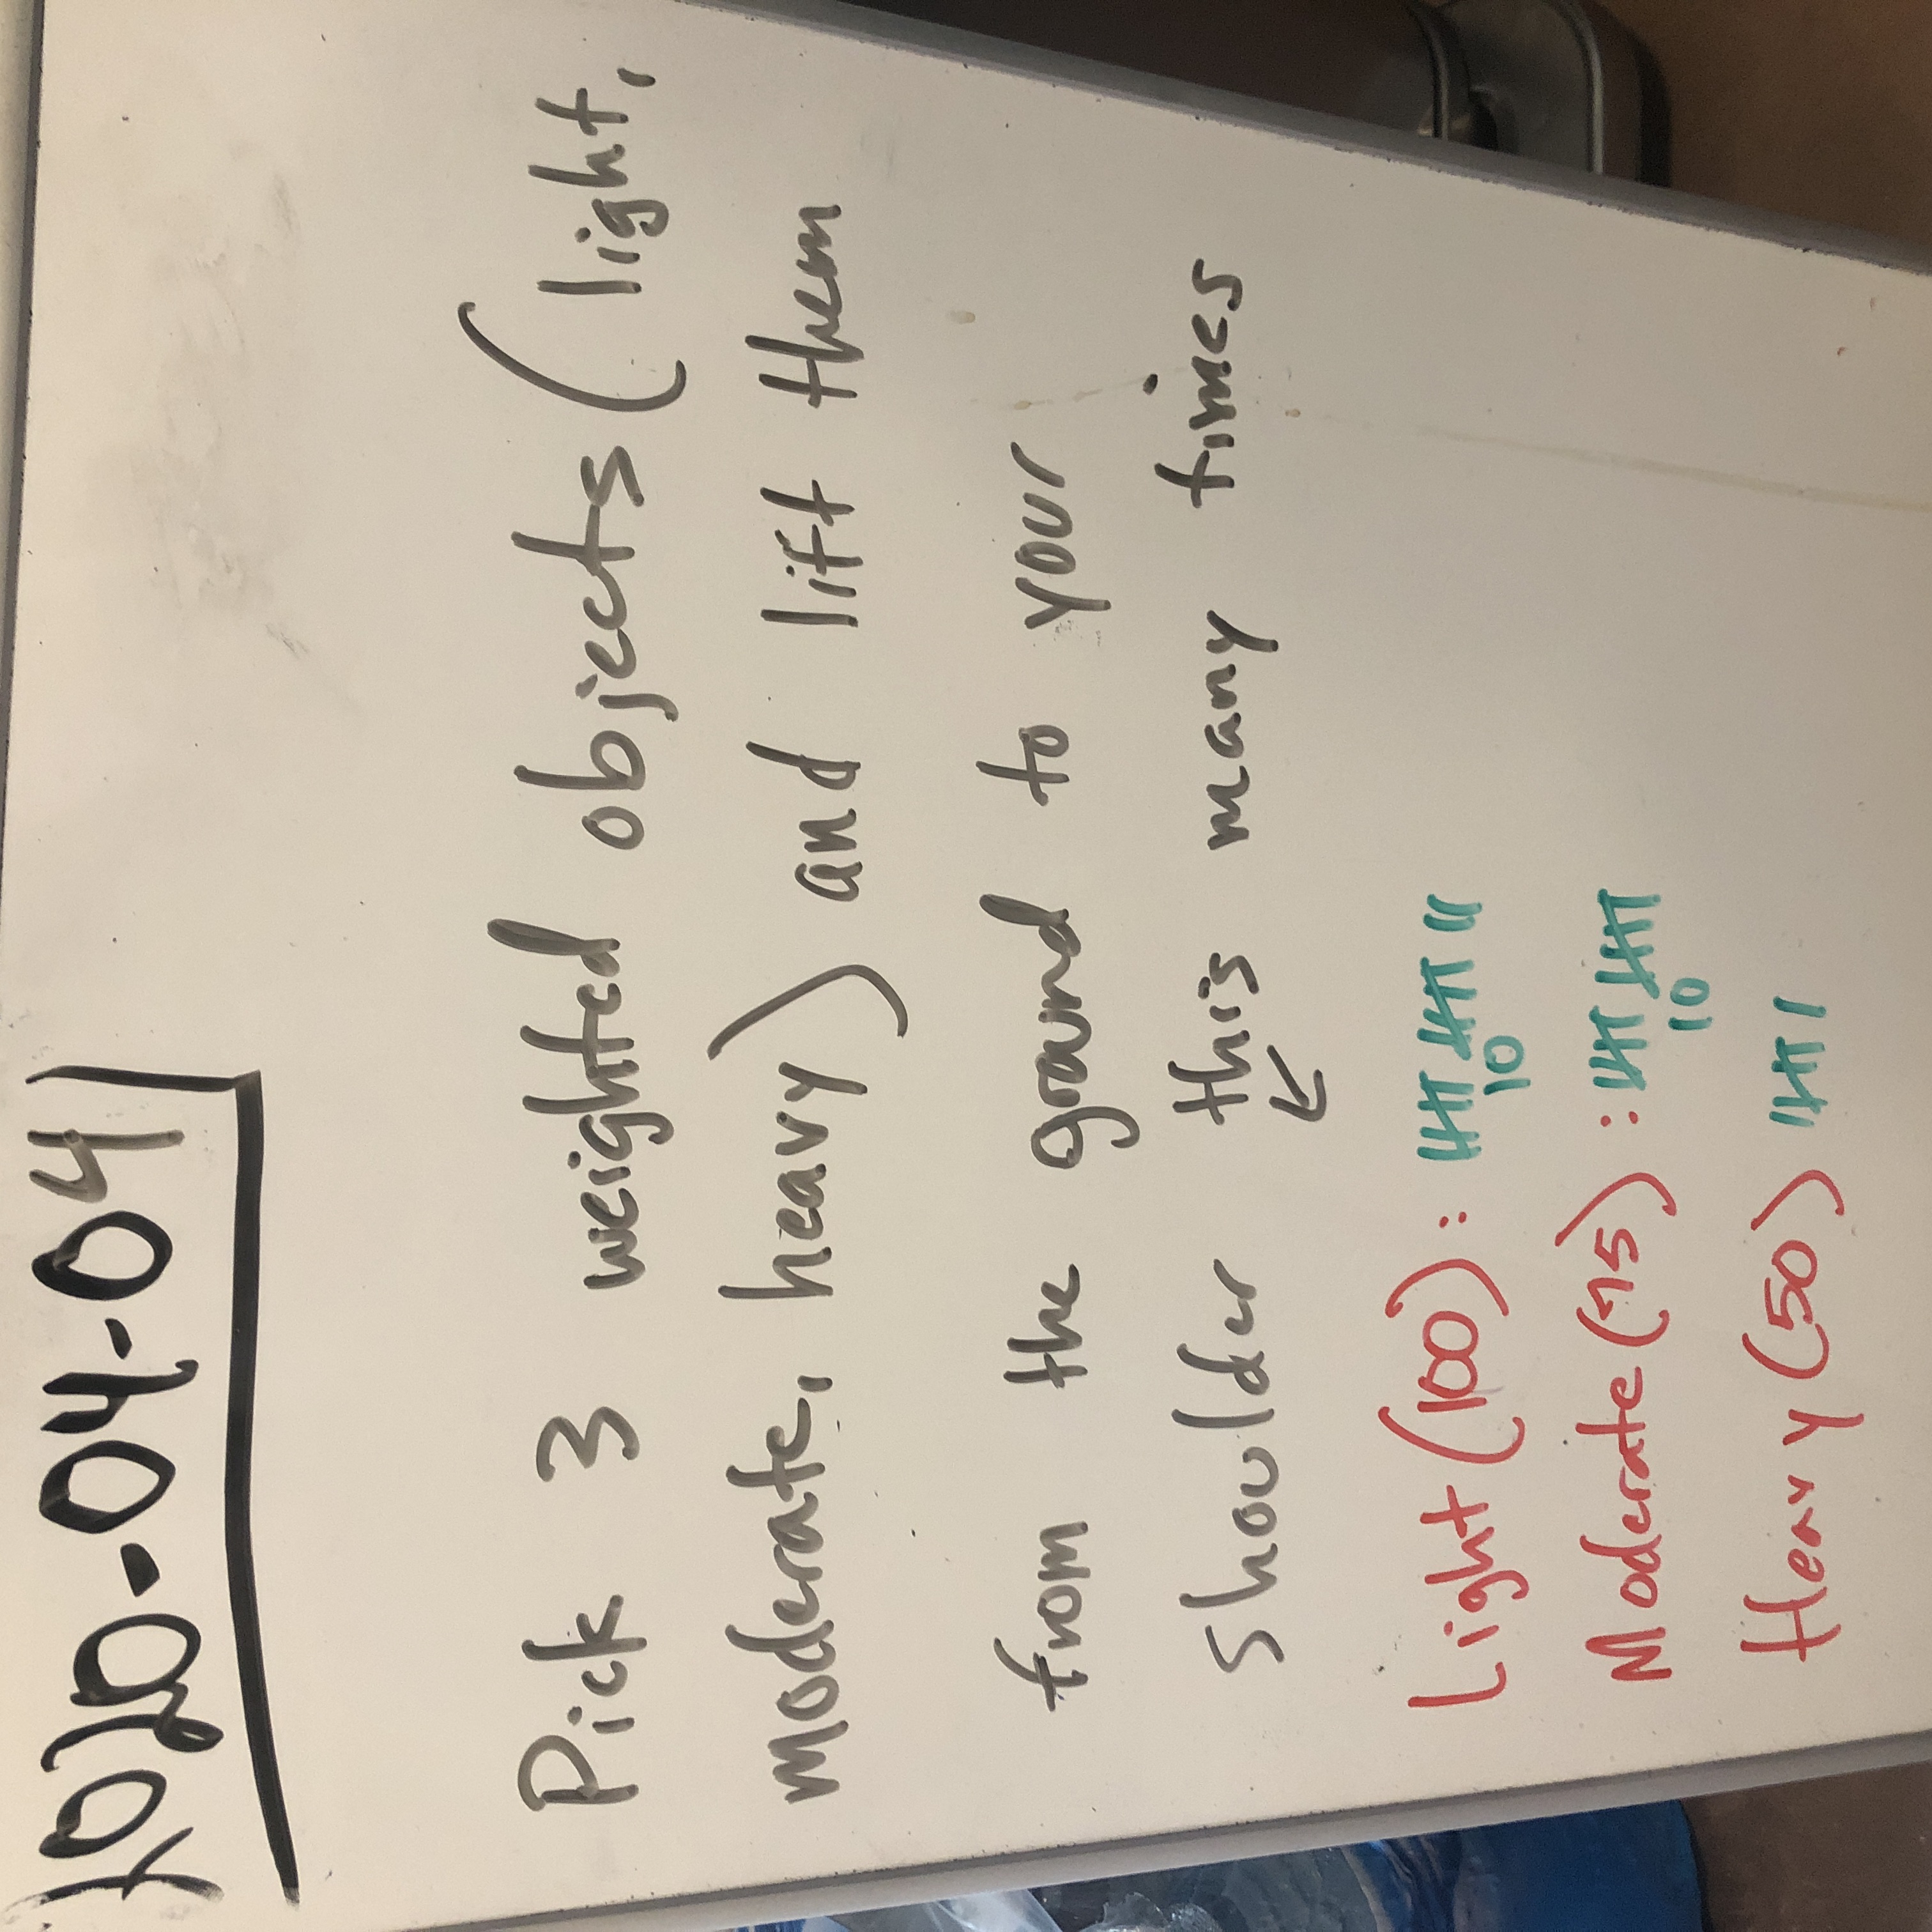 2020-04-04
Pick 3 weighted objects (light,
moderate, heavy) and lift them
from the ground to your
shoulder this many times
Light (100):
10
Moderate (75):
10
Heavy (50)